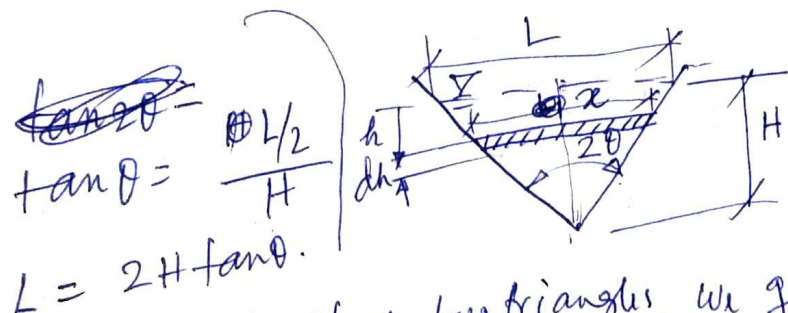 tan 2θ =
tan θ = L/2 / H
L = 2H tan θ.
triangles we g
L
x
h
dh
2θ
H